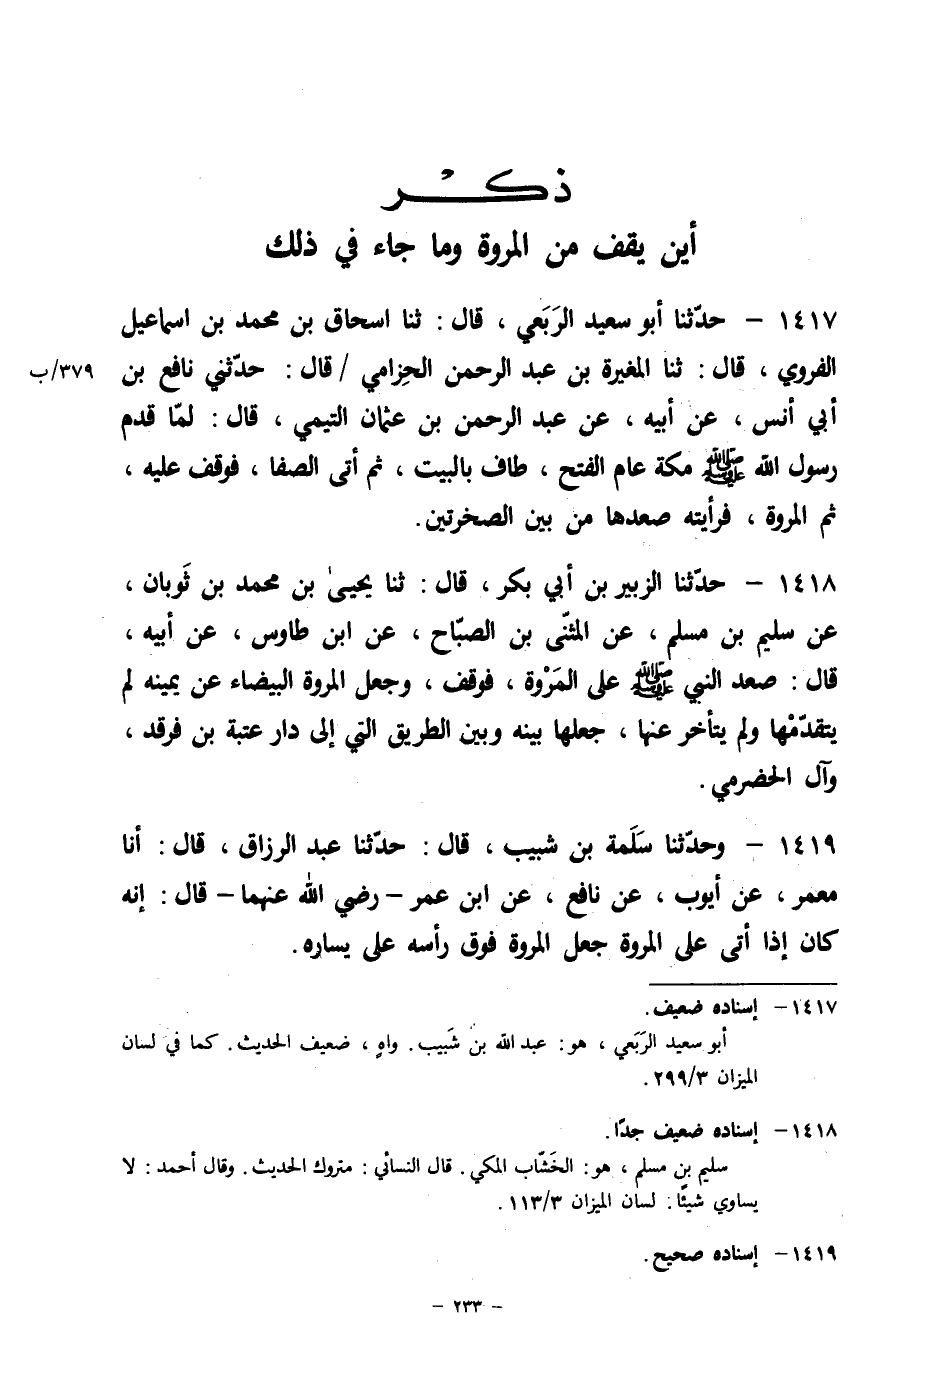 ذكر
أين يقف من المروة وما جاء في ذلك
١٤١٧ – حدّثنا أبو سعيد الرَبَعي ، قال : ثنا اسحاق بن محمد بن اسماعيل
الفروي ، قال : ثنا المغيرة بن عبد الرحمن الحِزامي / قال : حدّثني نافع بن ٣٧٩/ب
أبي أنس ، عن أبيه ، عن عبد الرحمن بن عثمان التيمي ، قال : لمّا قدم
رسول الله ﷺ مكة عام الفتح ، طاف بالبيت ، ثم أتى الصفا ، فوقف عليه ،
ثم المروة ، فرأيته صعدها من بين الصخرتين.
١٤١٨ – حدّثنا الزبير بن أبي بكر ، قال : ثنا يحيىٰ بن محمد بن ثَوبان ،
عن سليم بن مسلم ، عن المثنّى بن الصبّاح ، عن ابن طاوس ، عن أبيه ،
قال : صعد النبي ﷺ على المَرْوة ، فوقف ، وجعل المروة البيضاء عن يمينه لم
يتقدّمْها ولم يتأخر عنها ، جعلها بينه وبين الطريق التي إلى دار عتبة بن فرقد ،
وآل الحضرمي .
١٤١٩ – وحدّثنا سَلَمة بن شبيب ، قال : حدّثنا عبد الرزاق ، قال : أنا
معمر ، عن أيوب ، عن نافع ، عن ابن عمر – رضي الله عنهما – قال : إنه
كان إذا أتى على المروة جعل المروة فوق رأسه على يساره.
١٤١٧– إسناده ضعيف.
أبو سعيد الرَبَعي ، هو : عبد الله بن شَبيب . واهٍ ، ضعيف الحديث . كما في لسان
الميزان ٢٩٩/٣ .
١٤١٨– إسناده ضعيف جدًا.
سليم بن مسلم ، هو : الخَشّاب المكي . قال النسائي : متروك الحديث . وقال أحمد : لا
يساوي شيئًا : لسان الميزان ١١٣/٣ .
١٤١٩– إسناده صحيح.
– ٢٣٣ –